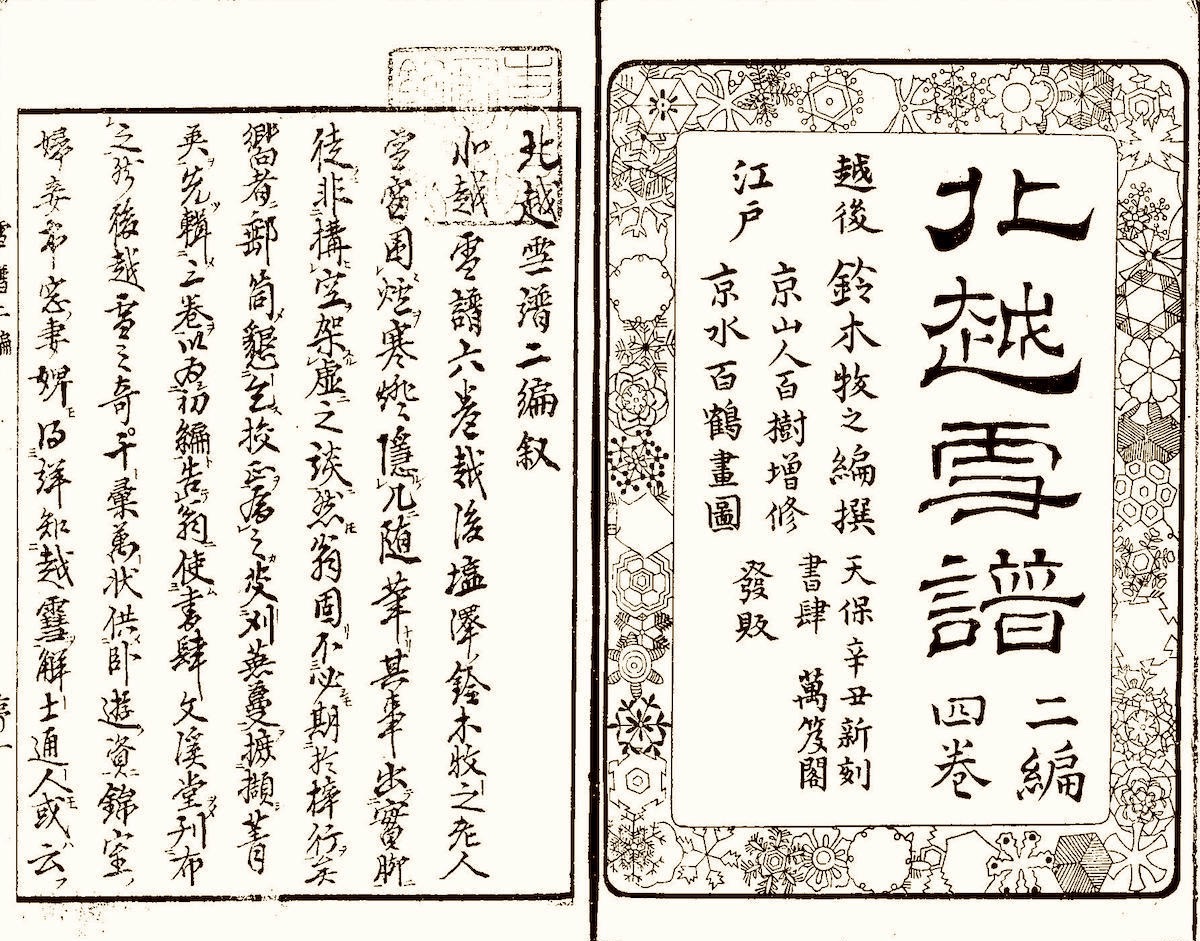 北越雪譜
二編
四巻
越後 鈴木牧之編撰
江戸 京山人百樹増修
京水百鶴畫圖
天保辛丑新刻
書肆 萬笈閣
發販
北越雪譜二編叙
北越雪譜六巻越後塩澤鈴木牧之老人
嘗窗围炉寒燈隱几随筆其事出實際
徒非搆空架虚之談然翁固不必期於梓行矣
嚮者郵筒懇乞挍正属之芟刈蕪蔓摭擷菁
英先輯三巻以為初編告翁使書肆文溪堂刊布
之於後越雪之奇千彙萬状供臥遊資錦室
婦妾市窓妻婢得詳知越雪解士通人或云
雪譜二編
序一